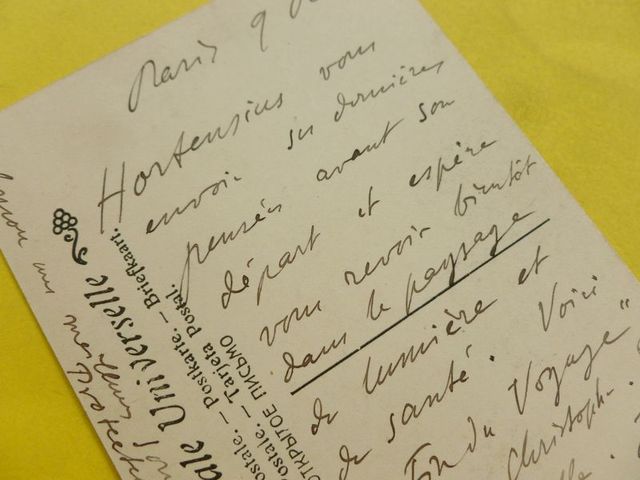 Paris 9
Hortensius vous
envoie ses dernières
pensées avant son
départ et espère
vous revoir bientôt
dans le paysage
de lumière et
de santé. Voici
Fin du Voyage"
Christoph
ale Universelle
ostale. – Postkarte. – Briefkaart.
Postale. – Tarjeta Postal.
ОТКРЫТОЕ ПИСЬМО